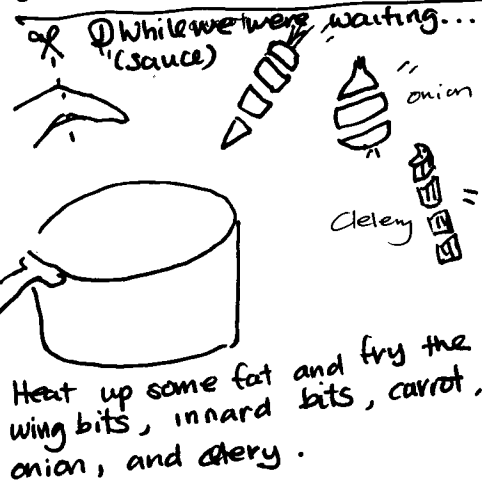 ① While we were waiting...
(sauce)
onion
Clelery
Heat up some fat and fry the
wing bits, innard bits, carrot,
onion, and celery.